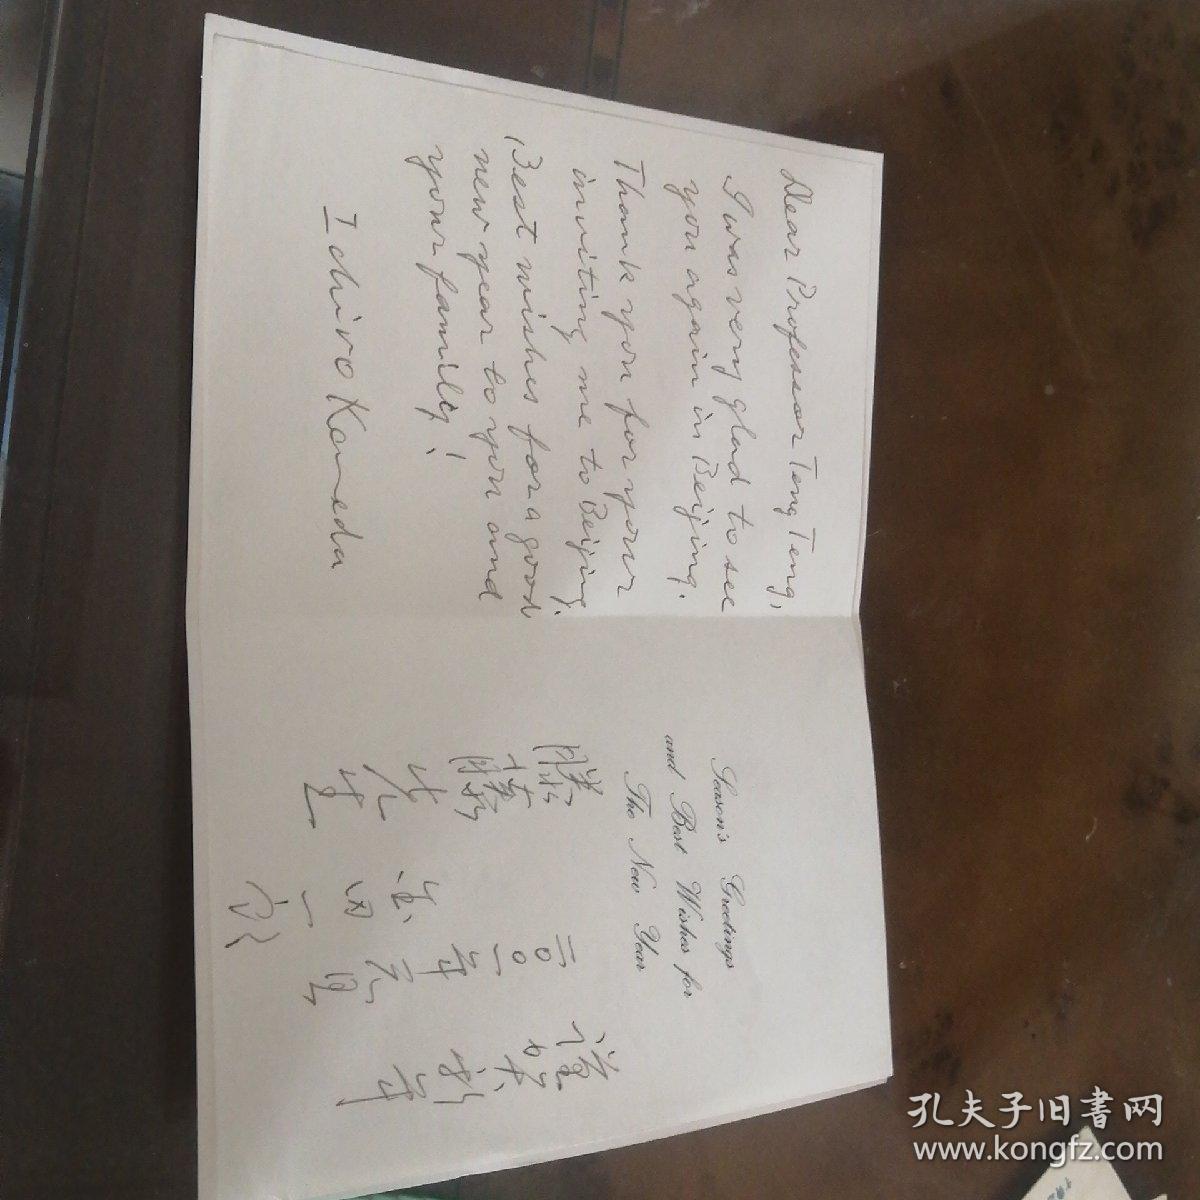 Dear Professor Teng Teng,
I was very glad to see
you again in Beijing.
Thank you for your
inviting me to Beijing.
Best wishes for a good
new year to you and
your family!
Ichiro Kameda
Season's Greetings
and Best Wishes for
The New Year
謹賀新年
二〇〇一年元旦
田一郎
滕藤先生
孔夫子旧書网
www.kongfz.com